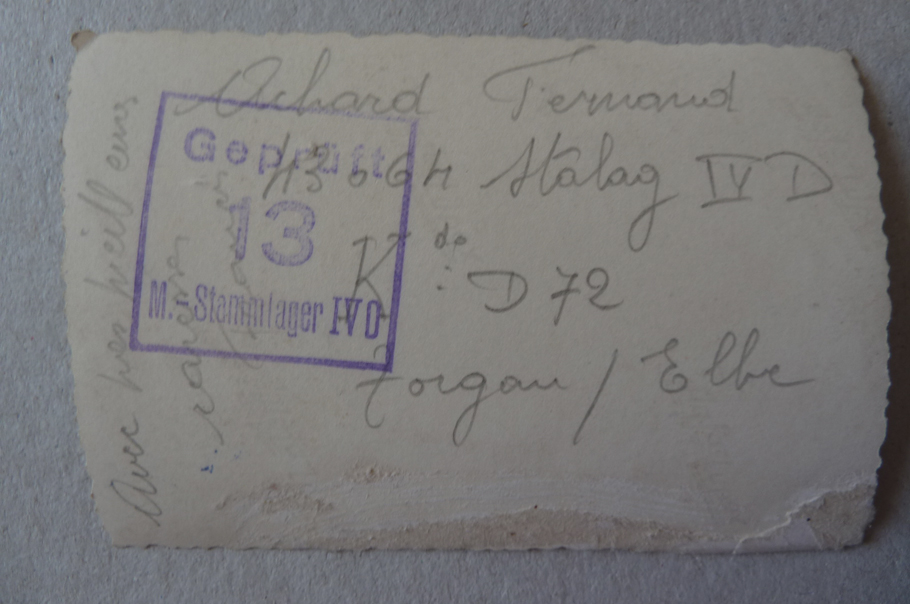 Achard Fernand
43064 Stalag IV D
Kdo : D 72
Torgau / Elbe
Geprüft
13
M.-Stammlager IV D
Avec mes meill eurs